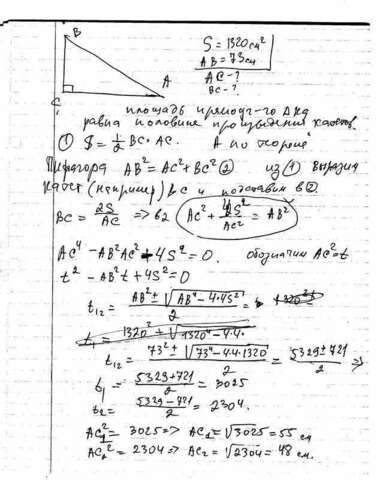 B
S = 1320 см²
AB = 73 см
AC - ?
BC - ?
A
C
площадь прямоуг-го Δ-ка
равна половине произведения катетов.
① S = 1/2 BC · AC. А по теореме
Пифагора AB² = AC² + BC² ② из ① выразив
катет (например) BC и подставим в ②
BC = 2S/AC => в 2 AC² + 4S²/AC² = AB²
AC⁴ - AB²AC² + 4S² = 0. обозначим AC² = t
t² - AB²t + 4S² = 0
t₁₂ = (AB² ± √(AB⁴ - 4·4S²))/2 =
t₁ = 1320² + √(1320⁴ - 4·4·
t₁₂ = (73² ± √(73⁴ - 4·4·1320))/2 = (5329 ± 721)/2 =>
t₁ = (5329 + 721)/2 = 3025
t₂ = (5329 - 721)/2 = 2304.
AC₁² = 3025 => AC₁ = √3025 = 55 см
AC₂² = 2304 => AC₂ = √2304 = 48 см.